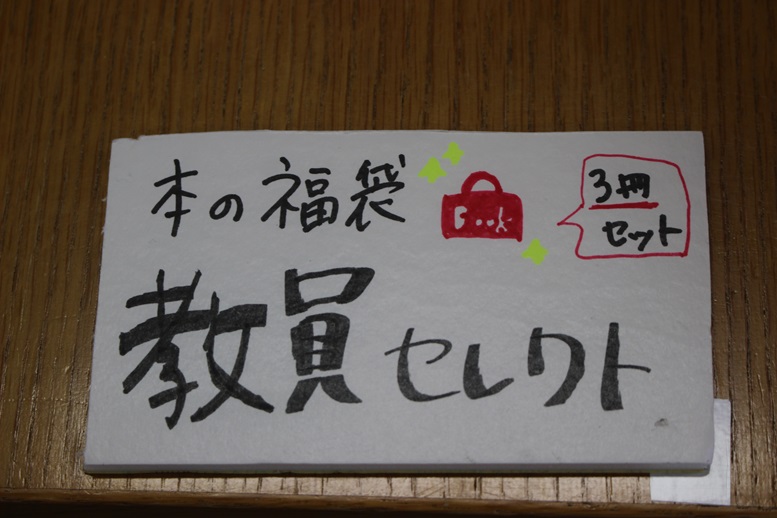 本の福袋
Book
3冊
セット
教員セレクト